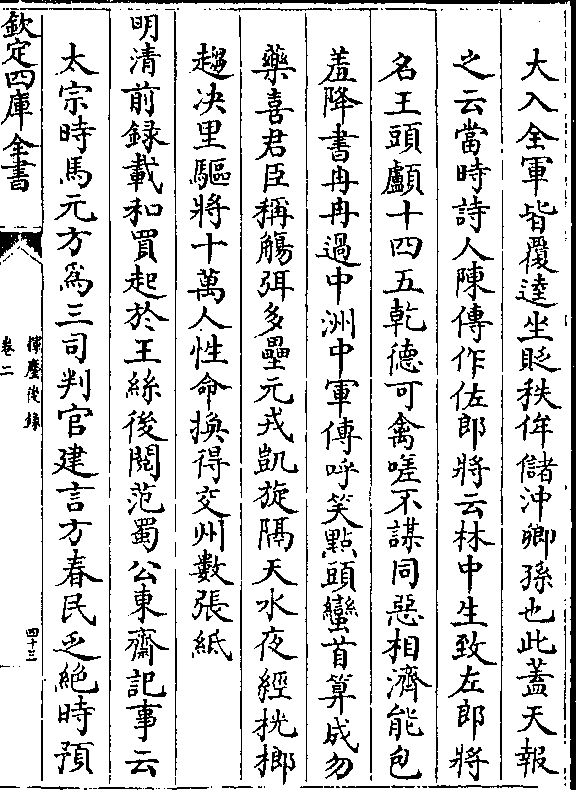 大入全軍皆覆逵坐貶秩侔儲沖卿孫也此蓋天報
之云當時詩人陳傳作佐郎將云林中生致左郎將
名王頭顱十四五乾德可禽嗟不謀同惡相濟能包
羞降書冉冉過中洲中軍傳呼笑點頭蠻首算成勿
藥喜君臣稱觴弭多壘元戎凱旋隔天水夜經桄榔
趨決里驅將十萬人性命換得交州數張紙
明清前録載和買起於王絲後閲范蜀公東齋記事云
太宗時馬元方爲三司判官建言方春民乏絶時預
欽定四庫全書
揮麈後録
卷二
四十三